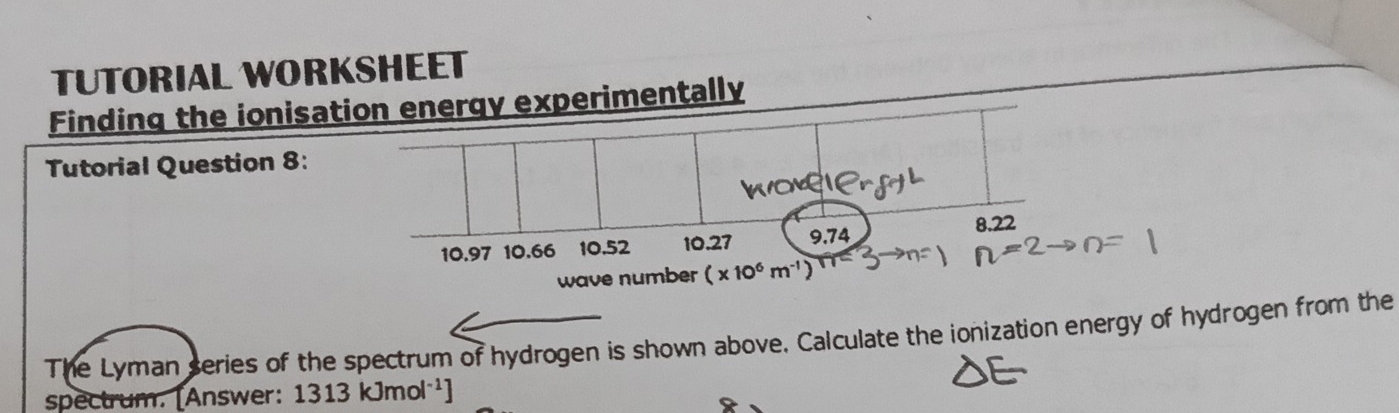 TUTORIAL WORKSHEET
Finding the ionisation energy experimentally
Tutorial Question 8:
wavelength
10.97 10.66 10.52 10.27 9.74 8.22
wave number ( x 10⁶ m⁻¹) n=3→n=1 n=2→n= 1
The Lyman series of the spectrum of hydrogen is shown above. Calculate the ionization energy of hydrogen from the
ΔE
spectrum. [Answer: 1313 kJmol⁻¹]